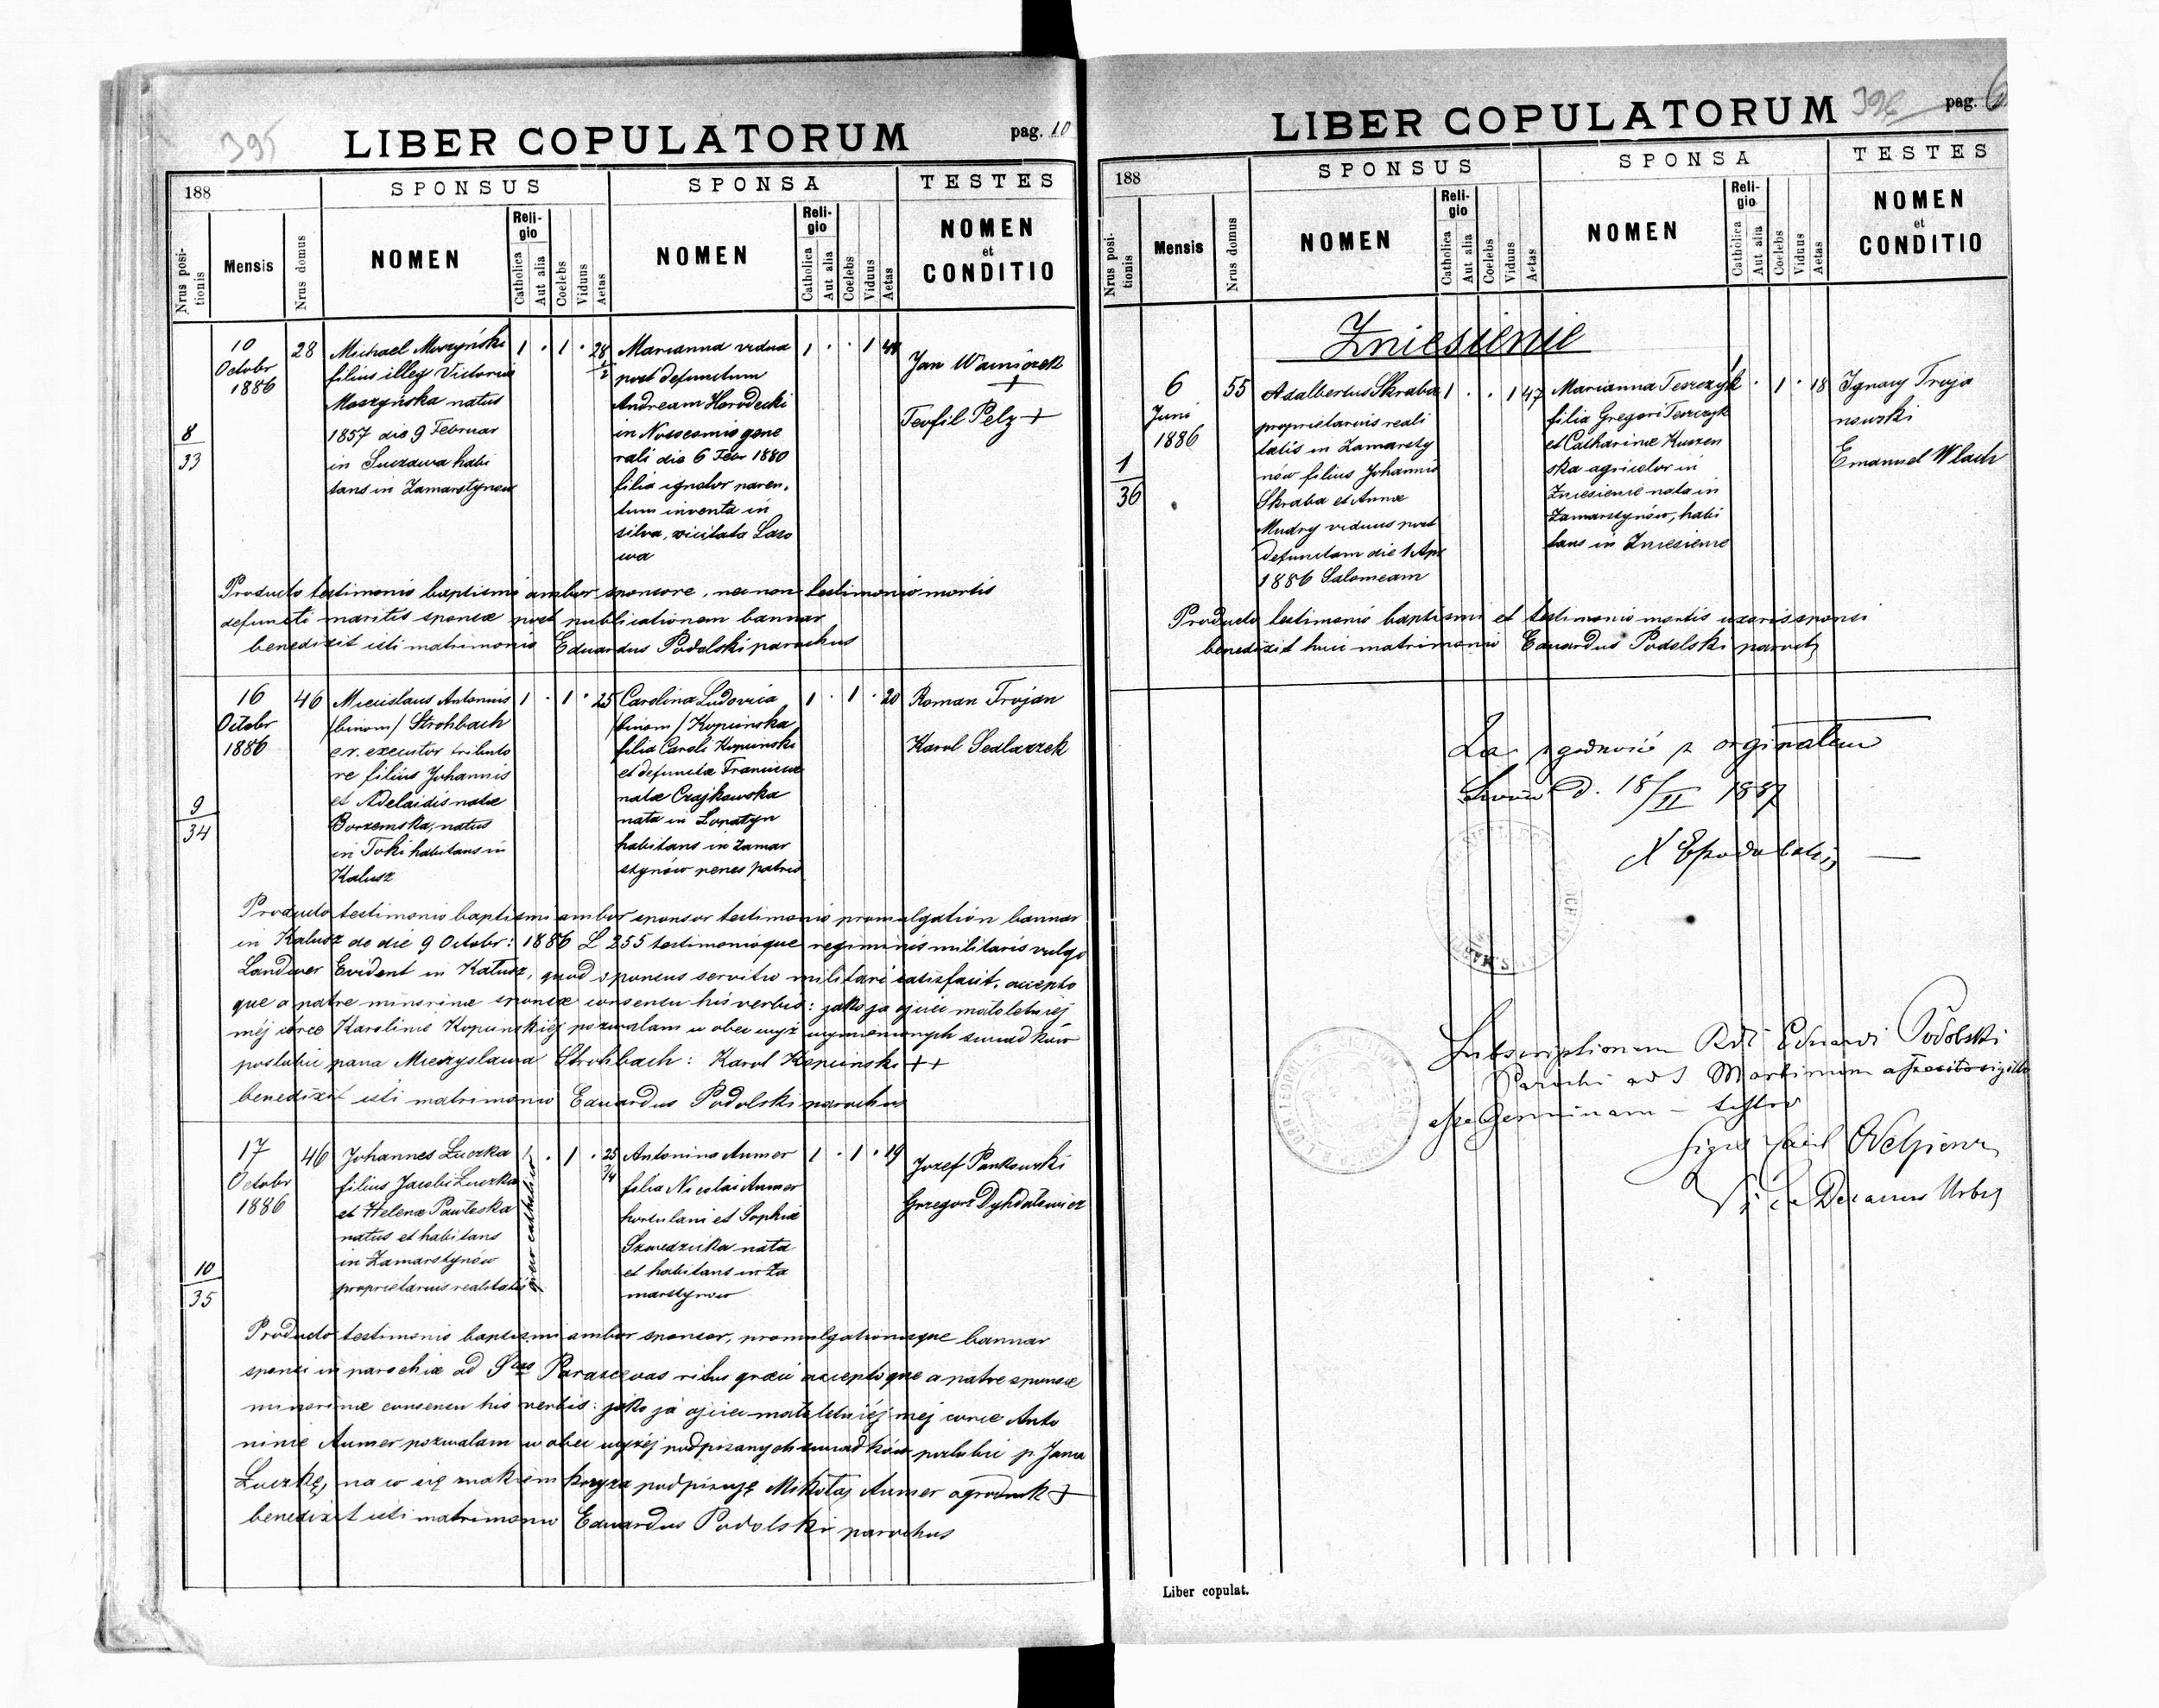 395
LIBER COPULATORUM
pag. 10
188
SPONSUS
SPONSA
TESTES
Nrus positionis
Mensis
Nrus domus
NOMEN
Religio
Catholica
Aut alia
Coelebs
Viduus
Aetas
NOMEN
Religio
Catholica
Aut alia
Coelebs
Viduus
Aetas
NOMEN
et
CONDITIO
8
33
10
Octobr
1886
28
Michael Moszyński
filius illeg Victoriae
Moszyńska natus
1857 die 9 Februar
in Suczawa habi
tans in Zamarstynow
1 . 1 . 28
1/2
Marianna vidua
post defunctum
Andream Horodecki
in Nosocomio gene
rali die 6 Febr 1880
filia ignotor paren.
tum inventa in
silva, vicitato Laso
wa
1 . . 1 44
Jan
+
Teofil Pelz +
Producto testimonio baptismi ambor sponsore, nec non testimonio mortis
defuncti maritis sponsae post publicationem bannor
benedixit isti matrimonio Eduardus Podolski parochus
9
34
16
Octobr
1886
46
Miecislaus Antonius
/binom/ Strohbach
c.r. executor tributo
re filius Johannis
et Adelaidis natae
Borzemska, natus
in Toki habitans in
Kalusz
1 . 1 . 25
Carolina Ludovica
/binom/ Kopcinska
filia Caroli Kopcinski
et defunctae Franciscae
natae Czajkowska
nata in Lopatyn
habitans in Zamar
stynów penes patris
1 . 1 . 20
Roman Trojan
Karol Sedlaczek
Producto testimonio baptismi ambor sponsor testimonio promulgation bannor
in Kalusz de die 9 Octobr: 1886 L 255 testimonioque regiminis militaris vulgo
Landwer Evident in Kałusz, quod sponsus servitio militari satisfacit, accepto
que a patre minorinae sponsae consensu his verbis: jako ja ojciec małoletniej
méj córce Karolinie Kopcinskiéj pozwalam w obec wyż wymienionych swiadków
poslubic pana Mieczyslawa Strohbach: Karol Kopcinski ++
benedixit isti matrimonio Eduardus Podolski parochus
10
35
17
Octobr
1886
46
Johannes Łuczka
filius Jacobi Łuczka
et Helenae Pawłeska
natus et habitans
in Zamarstynów
proprietarius realitatis
1 . 1 . 25
3/4
graeco catholicus
Antonina Aumer
filia Nicolai Aumer
hortulani et Sophiae
Szwedzicka nata
et habitans in Za
marstynow
1 . 1 . 19
Jozef Pankowski
Grzegorz Dyhdalewicz
Producto testimonio baptismi ambor sponsor, promulgationisque bannor
sponsi in parochia ad Stas Parascevas ritus graeci acceptoque a patre sponsae
minorinae consensu his verbis: jako ja ojciec małoletniéj méj corce Anto
ninie Aumer pozwalam w obec wyżéj podpisanych swiadków poslubic p Jana
Łuczkę, na co się znakiem krzyza podpisuję Mikołaj Aumer ogrodnik +
benedixit isti matrimonio Eduardus Podolski parochus
396
LIBER COPULATORUM
pag. 6
188
SPONSUS
SPONSA
TESTES
Nrus positionis
Mensis
Nrus domus
NOMEN
Religio
Catholica
Aut alia
Coelebs
Viduus
Aetas
NOMEN
Religio
Catholica
Aut alia
Coelebs
Viduus
Aetas
NOMEN
et
CONDITIO
Zniesienie
1
36
6
Juni
1886
55
Adalbertus Skraba
proprietarius reali
tatis in Zamarsty
nów filius Johannis
Skraba et Annae
Mudry viduus post
defunctam die 1 Apr
1886 Salomeam
1 . . 1 47
Marianna Teszczyk
filia Gregori Teszczyk
et Catharinae Kuszen
ska agricolor in
Zniesienie nata in
Zamarstynów, habi
tans in Zniesienie
1 . 1 . 18
Ignacy Troja
nowski
Emanuel Wlach
Producto testimonio baptismi et testimonio mortis uxoris sponsi
benedixit huic matrimonio Eduardus Podolski paroch
Za zgodność z orginałem
Lwów d. 18/II 1887
X EPodolski
Subscriptionem Rdi Eduardi Podolski
Parochi ad S Martinum apposito sigillo
esse Genuinam – testor
Vice Decanus Urbis
Liber copulat.